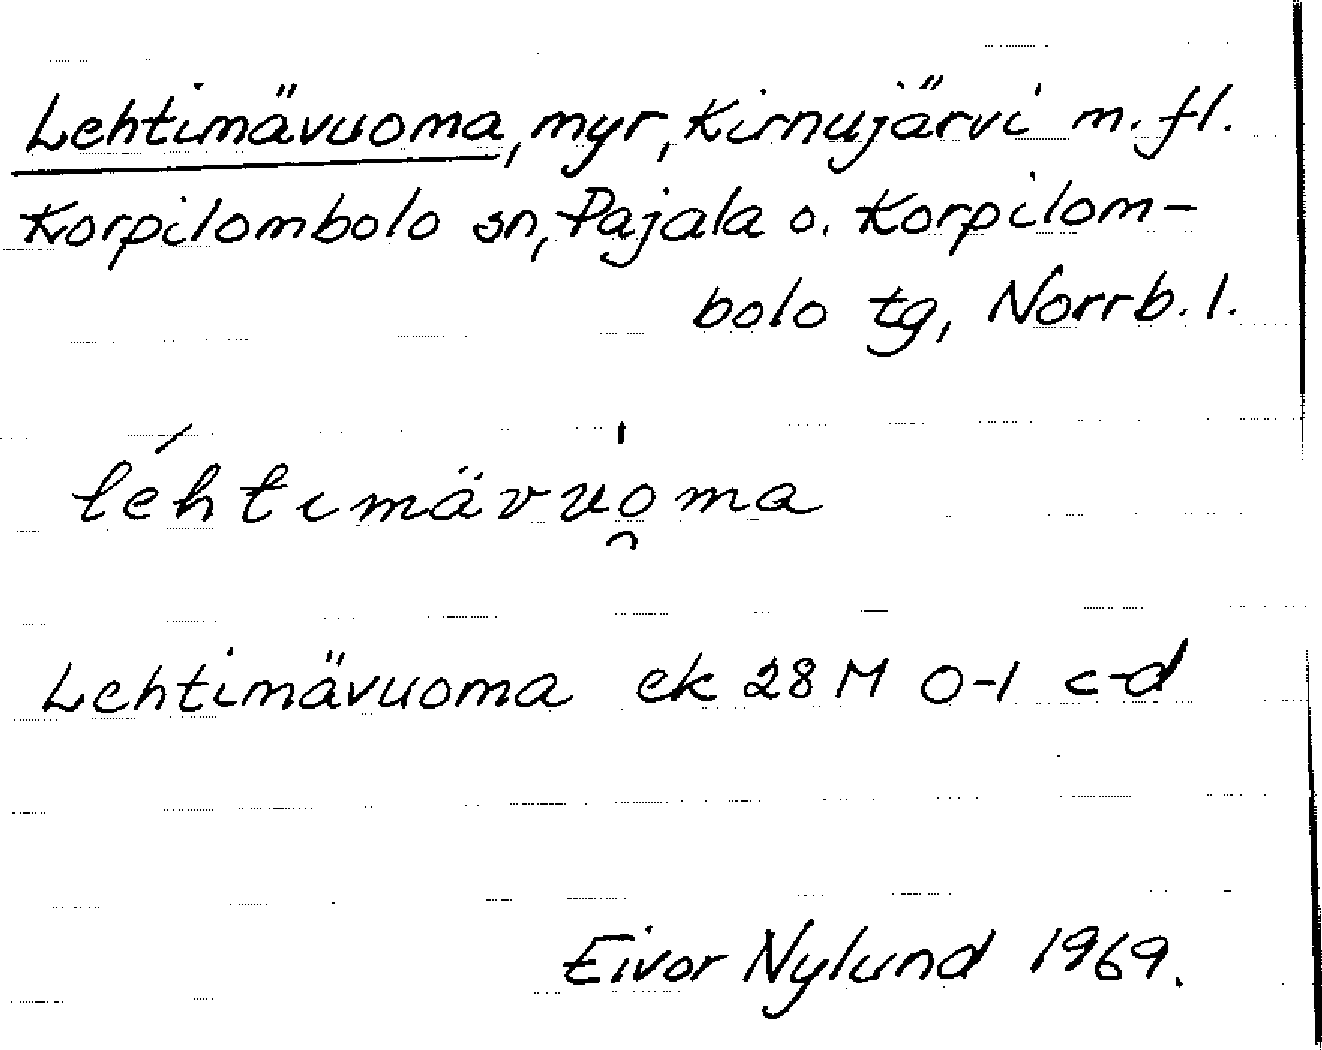 Lehtimävuoma, myr, Kirnujärvi m. fl.
Korpilombolo sn, Pajala o. Korpilom-
bolo tg, Norrb. l.
léhtimävu̯o̍ma
Lehtimävuoma ek 28 M 0-1 c-d
Eivor Nylund 1969.